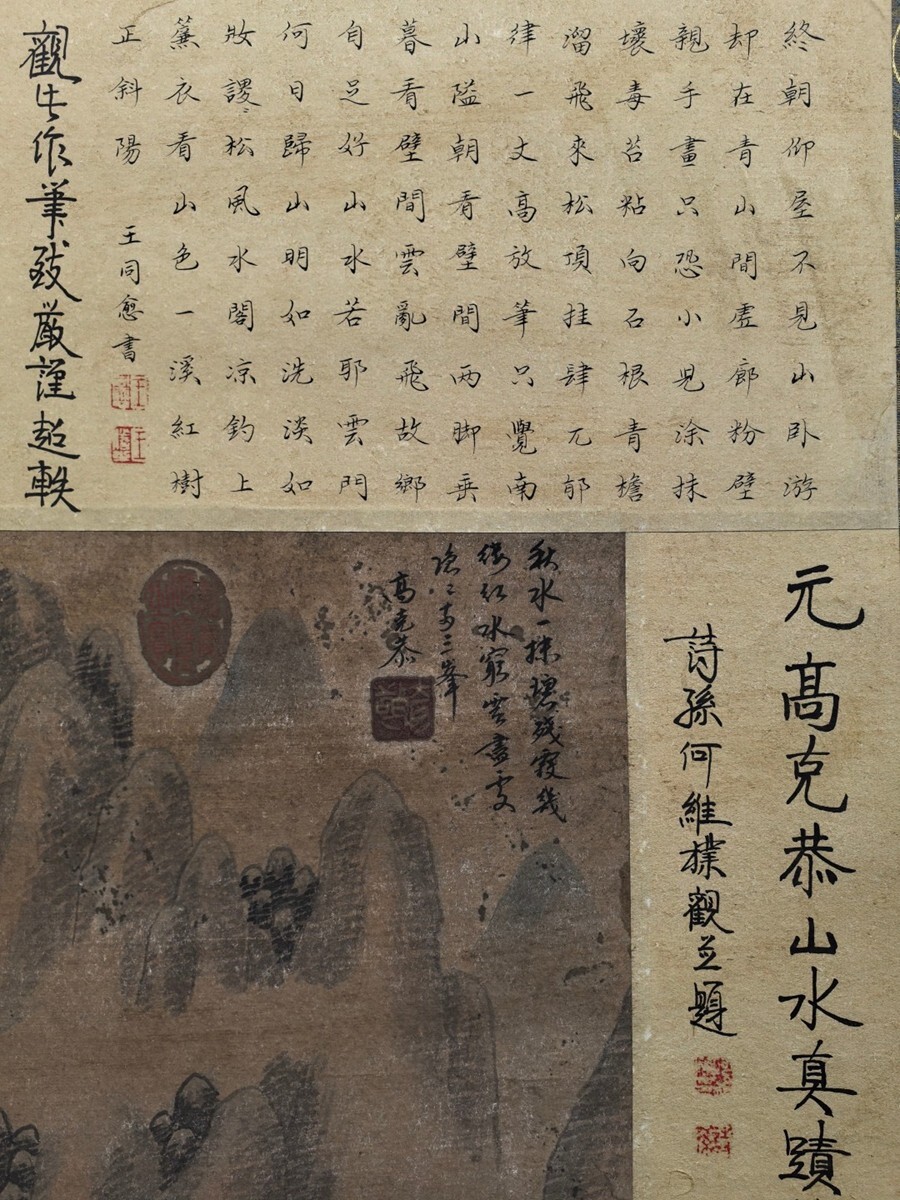 終朝仰屋不見山卧游
却在青山間虛廊粉壁
親手畫只恐小兒涂抹
壞毒苔粘向石根青檐
溜飛來松項挂肆兀郁
律一丈高放筆只覺南
山隘朝看壁間两脚垂
暮看壁間雲亂飛故鄉
自足好山水若耶雲門
何日歸山明如洗淡如
妝謖謖松風水閣凉釣上
簾衣看山色一溪紅樹
正斜陽
王同愈書
觀其作筆致嚴謹超軼
元髙克恭山水真蹟
詩孫何維樸觀並題
秋水一抹碧残霞幾
縷紅水窮雲盡處
隐隐两三峯
高克恭